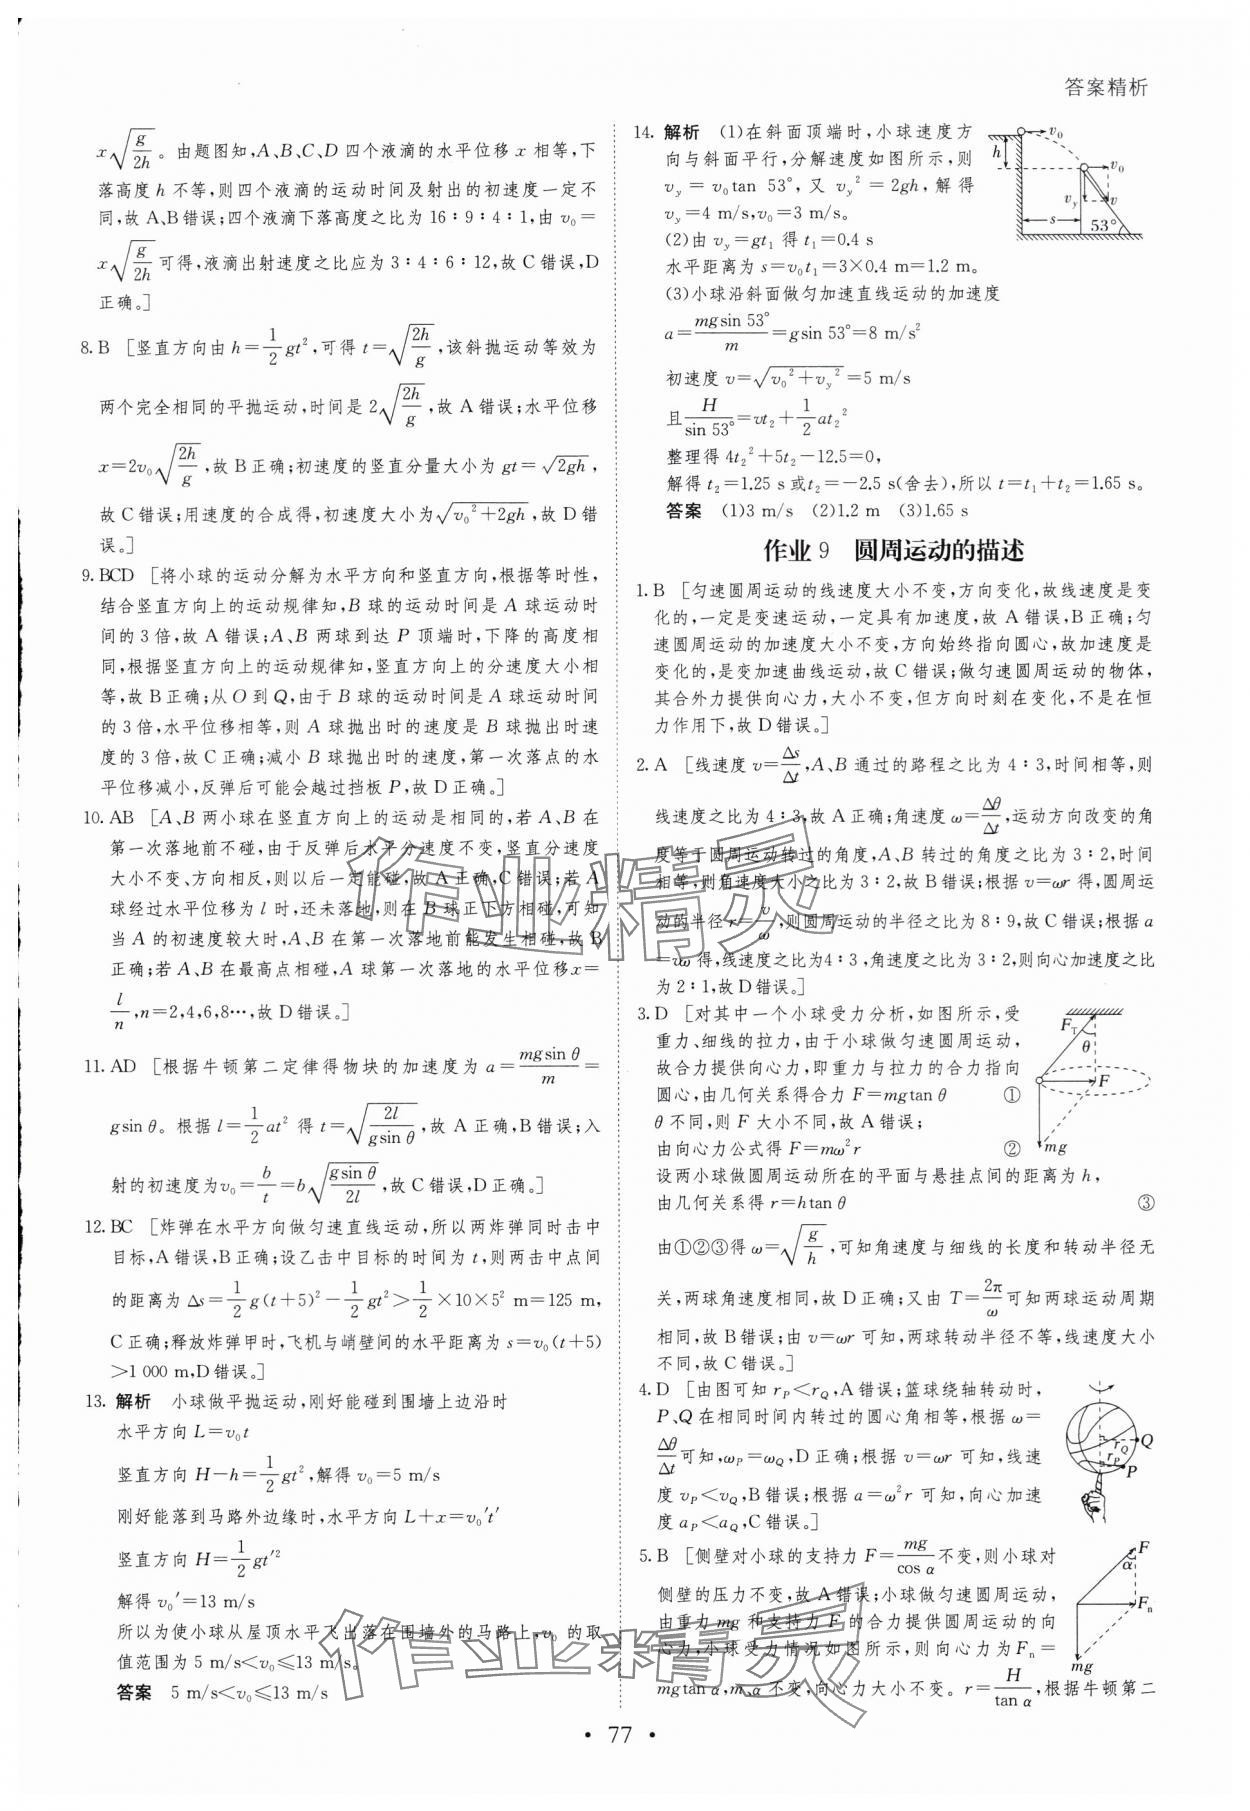 答案精析
x√(g/2h)。由题图知,A、B、C、D 四个液滴的水平位移 x 相等,下
落高度 h 不等,则四个液滴的运动时间及射出的初速度一定不
同,故 A、B错误;四个液滴下落高度之比为 16∶9∶4∶1,由 v₀=
x√(g/2h)可得,液滴出射速度之比应为 3∶4∶6∶12,故 C 错误,D
正确。]
8. B [竖直方向由 h=1/2 gt²,可得 t=√(2h/g),该斜抛运动等效为
两个完全相同的平抛运动,时间是 2√(2h/g),故 A 错误;水平位移
x=2v₀√(2h/g),故 B 正确;初速度的竖直分量大小为 gt=√(2gh),
故 C 错误;用速度的合成得,初速度大小为√(v₀²+2gh),故 D 错
误。]
9. BCD [将小球的运动分解为水平方向和竖直方向,根据等时性,
结合竖直方向上的运动规律知,B 球的运动时间是 A 球运动时
间的 3 倍,故 A 错误;A、B 两球到达 P 顶端时,下降的高度相
同,根据竖直方向上的运动规律知,竖直方向上的分速度大小相
等,故 B 正确;从 O 到 Q,由于 B 球的运动时间是 A 球运动时间
的 3 倍,水平位移相等,则 A 球抛出时的速度是 B 球抛出时速
度的 3 倍,故 C 正确;减小 B 球抛出时的速度,第一次落点的水
平位移减小,反弹后可能会越过挡板 P,故 D 正确。]
10. AB [A、B 两小球在竖直方向上的运动是相同的,若 A、B 在
第一次落地前不碰,由于反弹后水平分速度不变,竖直分速度
大小不变、方向相反,则以后一定能碰,故 A 正确,C 错误;若 A
球经过水平位移为 l 时,还未落地,则在 B 球正下方相碰,可知
当 A 的初速度较大时,A、B 在第一次落地前能发生相碰,故 B
正确;若 A、B 在最高点相碰,A 球第一次落地的水平位移x=
l/n,n=2,4,6,8…,故 D 错误。]
11. AD [根据牛顿第二定律得物块的加速度为 a=mgsin θ/m=
gsin θ。根据 l=1/2 at² 得 t=√(2l/gsin θ),故 A 正确,B 错误;入
射的初速度为v₀=b/t=b√(gsin θ/2l),故 C 错误,D 正确。]
12. BC [炸弹在水平方向做匀速直线运动,所以两炸弹同时击中
目标,A 错误,B 正确;设乙击中目标的时间为 t,则两击中点间
的距离为 Δs=1/2 g(t+5)²-1/2 gt²>1/2×10×5² m=125 m,
C 正确;释放炸弹甲时,飞机与峭壁间的水平距离为 s=v₀(t+5)
>1 000 m,D 错误。]
13. 解析 小球做平抛运动,刚好能碰到围墙上边沿时
水平方向 L=v₀t
竖直方向 H-h=1/2 gt²,解得 v₀=5 m/s
刚好能落到马路外边缘时,水平方向 L+x=v₀′t′
竖直方向 H=1/2 gt′²
解得 v₀′=13 m/s
所以为使小球从屋顶水平飞出落在围墙外的马路上,v₀ 的取
值范围为 5 m/s<v₀≤13 m/s。
答案 5 m/s<v₀≤13 m/s
14. 解析 (1)在斜面顶端时,小球速度方
向与斜面平行,分解速度如图所示,则
v_y=v₀tan 53°,又 v_y²=2gh,解得
v_y=4 m/s,v₀=3 m/s。
(2)由 v_y=gt₁ 得 t₁=0.4 s
水平距离为 s=v₀t₁=3×0.4 m=1.2 m。
(3)小球沿斜面做匀加速直线运动的加速度
a=mgsin 53°/m=gsin 53°=8 m/s²
初速度 v=√(v₀²+v_y²)=5 m/s
且H/sin 53°=vt₂+1/2 at₂²
整理得 4t₂²+5t₂-12.5=0,
解得 t₂=1.25 s 或t₂=-2.5 s(舍去),所以 t=t₁+t₂=1.65 s。
答案 (1)3 m/s (2)1.2 m (3)1.65 s
v₀
h
v₀
v_y
v
s
53°
作业 9 圆周运动的描述
1. B [匀速圆周运动的线速度大小不变,方向变化,故线速度是变
化的,一定是变速运动,一定具有加速度,故 A 错误,B 正确;匀
速圆周运动的加速度大小不变,方向始终指向圆心,故加速度是
变化的,是变加速曲线运动,故 C 错误;做匀速圆周运动的物体,
其合外力提供向心力,大小不变,但方向时刻在变化,不是在恒
力作用下,故 D 错误。]
2. A [线速度 v=Δs/Δt,A、B 通过的路程之比为 4∶3,时间相等,则
线速度之比为 4∶3,故 A 正确;角速度 ω=Δθ/Δt,运动方向改变的角
度等于圆周运动转过的角度,A、B 转过的角度之比为 3∶2,时间
相等,则角速度大小之比为 3∶2,故 B 错误;根据 v=ωr 得,圆周运
动的半径 r=v/ω,则圆周运动的半径之比为 8∶9,故 C 错误;根据 a
=vω 得,线速度之比为4∶3,角速度之比为 3∶2,则向心加速度之比
为 2∶1,故 D 错误。]
3. D [对其中一个小球受力分析,如图所示,受
重力、细线的拉力,由于小球做匀速圆周运动,
故合力提供向心力,即重力与拉力的合力指向
圆心,由几何关系得合力 F=mgtan θ ①
θ 不同,则 F 大小不同,故 A 错误;
由向心力公式得 F=mω²r ②
设两小球做圆周运动所在的平面与悬挂点间的距离为 h,
由几何关系得 r=htan θ ③
由①②③得 ω=√(g/h),可知角速度与细线的长度和转动半径无
关,两球角速度相同,故 D 正确;又由 T=2π/ω可知两球运动周期
相同,故 B 错误;由 v=ωr 可知,两球转动半径不等,线速度大小
不同,故 C 错误。]
F_T
θ
F
mg
4. D [由图可知 r_P<r_Q,A 错误;篮球绕轴转动时,
P、Q 在相同时间内转过的圆心角相等,根据 ω=
Δθ/Δt可知,ω_P=ω_Q,D 正确;根据 v=ωr 可知,线速
度 v_P<v_Q,B 错误;根据 a=ω²r 可知,向心加速
度 a_P<a_Q,C 错误。]
r_Q
Q
r_P
P
5. B [侧壁对小球的支持力 F=mg/cos α不变,则小球对
侧壁的压力不变,故 A 错误;小球做匀速圆周运动,
由重力 mg 和支持力 F 的合力提供圆周运动的向
心力,小球受力情况如图所示,则向心力为 Fₙ=
mgtan α,m、α 不变,向心力大小不变。r=H/tan α,根据牛顿第二
F
α
Fₙ
mg
作业精灵
作业精灵
• 77 •